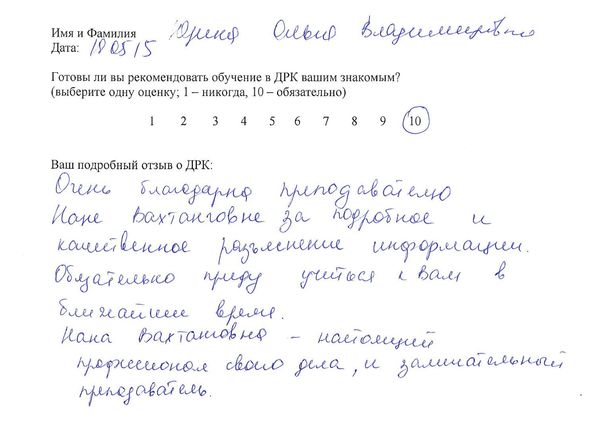 Имя и Фамилия Юрина Ольга Владимировна
Дата: 18 05 15
Готовы ли вы рекомендовать обучение в ДРК вашим знакомым?
(выберите одну оценку; 1 – никогда, 10 – обязательно)
1 2 3 4 5 6 7 8 9 10
Ваш подробный отзыв о ДРК:
Очень благодарна преподавателю
Нане Вахтанговне за подробное и
качественное разъяснение информации.
Обязательно приду учиться к Вам в
ближайшее время.
Нана Вахтанговна – настоящий
профессионал своего дела, и замечательный
преподаватель.